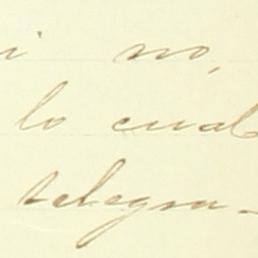 i no,
lo cual
telegra-